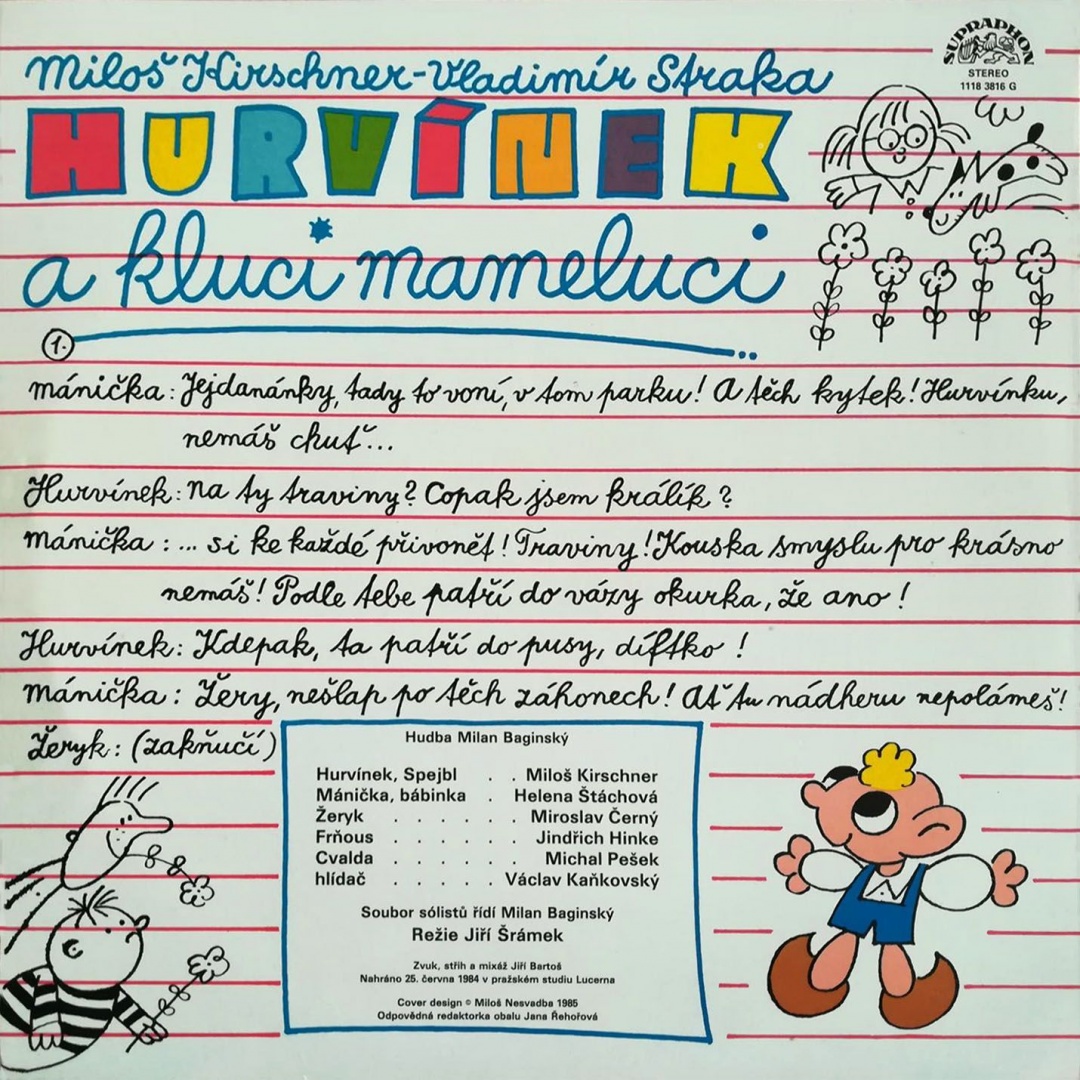 Miloš Kirschner-Vladimír Straka
SUPRAPHON
STEREO
1118 3816 G
HURVÍNEK
a kluci mameluci
1.
mánička: Jejdanánky, tady to voní, v tom parku! A těch kytek! Hurvínku,
nemáš chuť...
Hurvínek: Na ty traviny? Copak jsem králík?
mánička: ... si ke každé přivonět! Traviny! Kouska smyslu pro krásno
nemáš! Podle tebe patří do vázy okurka, že ano!
Hurvínek: Kdepak, ta patří do pusy, díftko!
mánička: Žery, nešlap po těch záhonech! Ať tu nádheru nepolámeš!
Žeryk: (zakňučí)
Hudba Milan Baginský
Hurvínek, Spejbl . . Miloš Kirschner
Mánička, bábinka . Helena Štáchová
Žeryk . . . . . . Miroslav Černý
Frňous . . . . . . Jindřich Hinke
Cvalda . . . . . . Michal Pešek
hlídač . . . . . Václav Kaňkovský
Soubor sólistů řídí Milan Baginský
Režie Jiří Šrámek
Zvuk, střih a mixáž Jiří Bartoš
Nahráno 25. června 1984 v pražském studiu Lucerna
Cover design © Miloš Nesvadba 1985
Odpovědná redaktorka obalu Jana Řehořová